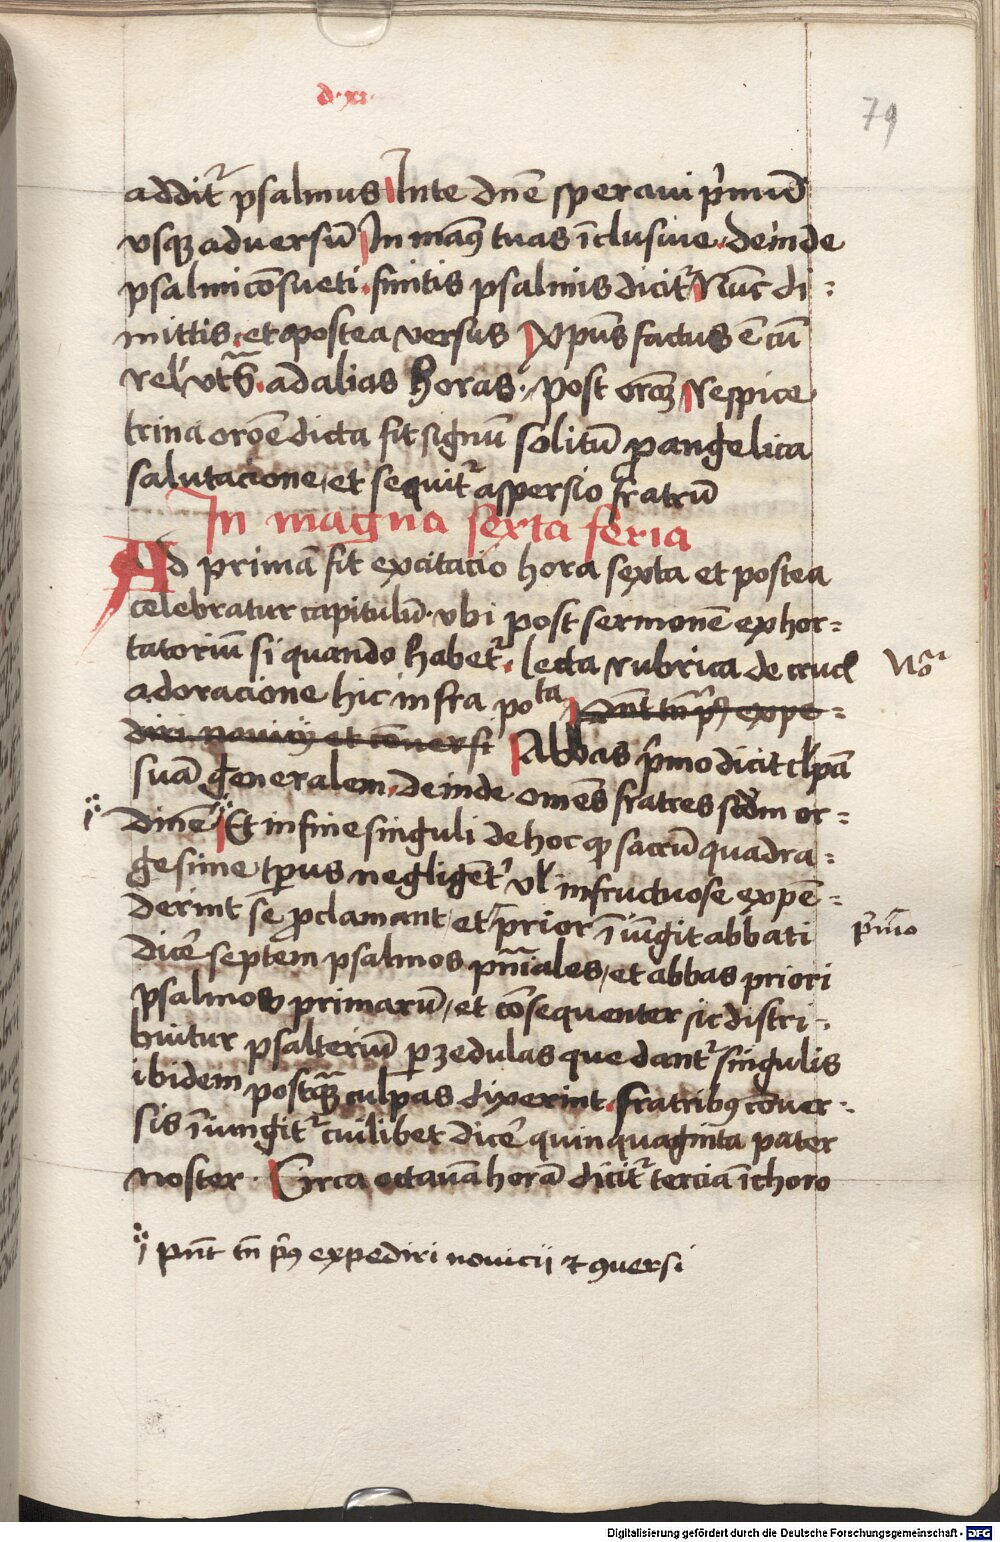 d·xi·
79
additr psalmus In te dnē speraui pͥmūꝺ
vsqꝫ ad versū In manꝰ tuas īclusiue. deinde
psalmi cōsueti. finitis psalmis dicitr Nūc di-
mittis. et postea versus Xpūs factus ē cū
rel vt sͣ. ad alias horas. post orōꝫ Respice
trina orōe dicta fit signū solitū ꝑ angelica
salutacione, et sequitr aspersio fratrū
In magna sexta feria
Ad primā fit excitacio hora sexta et postea
celebratur capitulū. vbi post sermonē exhor-
tatoriū si quando habetr. lecta rubrica de crucꝭ
No.
adoracione hic infra poͭͣ pn̄t tn̄ pͥꝰ expe-
diri nouicij et cōuersi Abbas pͥmo dicit cl̄pā
suā generalem. deinde omēs fratres scdm or-
dinē Et in fine singuli de hoc ꝙ sacrū quadra-
gesime tp̄us negligēt͛ vl̓ infructuose expē-
derint sē ꝓclamant, et prior īiūgit abbati
pͥmo
dicē septem psalmos pn̄iales, et abbas priori
psalmos primarū, et cōsequenter sic distri-
buitur psalteriū ꝑ zedulas que dantr singulis
ibidem postqꝫ culpas dixerint. fratribꝰ cōuer-
sis īiungitr cuilibet dicē quinquaginta pater
noster. Circa octauā horā dicitr tercia ī choro
pn̄t tn̄ pͥꝰ expediri nouicii et ꝯuersi
Digitalisierung gefördert durch die Deutsche Forschungsgemeinschaft - DFG